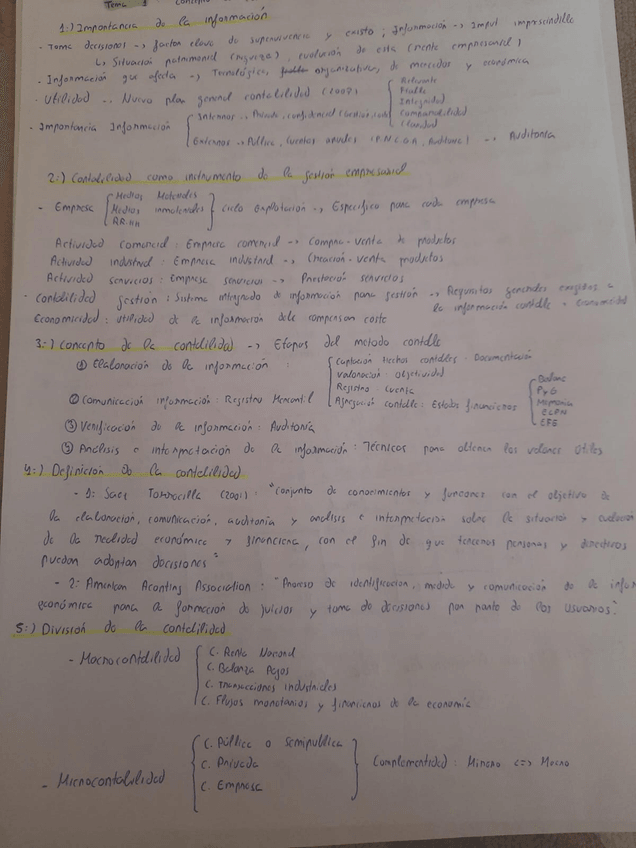 Tema 1
1:) Importancia de la información
- Toma decisiones -> factor clave de supervivencia y exito; Información -> Input imprescindible
L> Situación patrimonial (riqueza), evolución de esta (renta empresarial)
- Información que afecta -> Tecnológica, organizativa, de mercados y económica
- Utilidad -> Nuevo plan general contabilidad (2007)
Relevante
Fiable
Integridad
Comparabilidad
Claridad
- Importancia Información
Internos -> Privada, confidencial
Externos -> Pública, Cuentas anuales (P.N.C.G.A, Auditoría) -> Auditoría
2:) Contabilidad como instrumento de la gestión empresarial
- Empresa
Medios Materiales
Medios inmateriales
RR.HH
Ciclo Explotación -> Especifico para cada empresa
Actividad comercial: Empresa comercial -> Compra-venta de productos
Actividad industrial: Empresa industrial -> Creación-venta productos
Actividad servicios: Empresa servicios -> Prestación servicios
- Contabilidad gestión: Sistema integrado de información para gestión -> Requisitos generales exigidos a
la información contable = economicidad
Economicidad: utilidad de la información debe compensar coste
3:) Concepto de la contabilidad -> Etapas del metodo contable
① Elaboración de la información:
Captación Hechos contables: Documentación
Valoración: objetividad
Registro: Cuenta
Agregación contable: Estados financieros
Balance
PyG
Memoria
ECPN
EFE
② Comunicación información: Registro Mercantil
③ Verificación de la información: Auditoría
④ Análisis e interpretación de la información: Técnicas para obtener los valores útiles
4:) Definición de la contabilidad
- 1: Saez Torrecilla (2001): "Conjunto de conocimientos y funciones con el objetivo de
la elaboración, comunicación, auditoría y análisis e interpretación sobre la situación y evolución
de la realidad económica y financiera, con el fin de que terceras personas y directivos
puedan adoptar decisiones"
- 2: American Aconting Association: "Proceso de identificación, medida y comunicación de la infor
económica para la formación de juicios y toma de decisiones por parte de los usuarios."
5:) División de la contabilidad
- Macrocontabilidad
C. Renta Nacional
C. Balanza Pagos
C. Transacciones industriales
C. Flujos monetarios y financieros de la economía
- Microcontabilidad
C. Pública o semipublica
C. Privada
C. Empresa
Complementidad: Micro <=> Macro